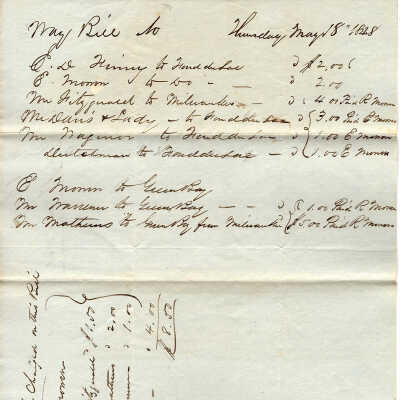 Way Bill No Thursday May 18th 1848
E. D. Kinney to Fonddulac $2.00
E. Moron to Do 2.00
Mr Fitzgerald to Milwaukee 4.00 Paid R Moron
Mr Davis & Lady to Fonddulac 3.00 Paid E Moron
Mr Wagner to Fonddulac 1.00 E Moron
Dutchman to Fonddulac 1.00 E Moron
E Moron to Green Bay
Mr to Green Bay 1.00 Paid R Moron
Mr Mathews to Green Bay from Milwaukee $5.00 Paid R Moron
Charged on this Bill
$1.50
2.00
1.00
4.00
$8.50